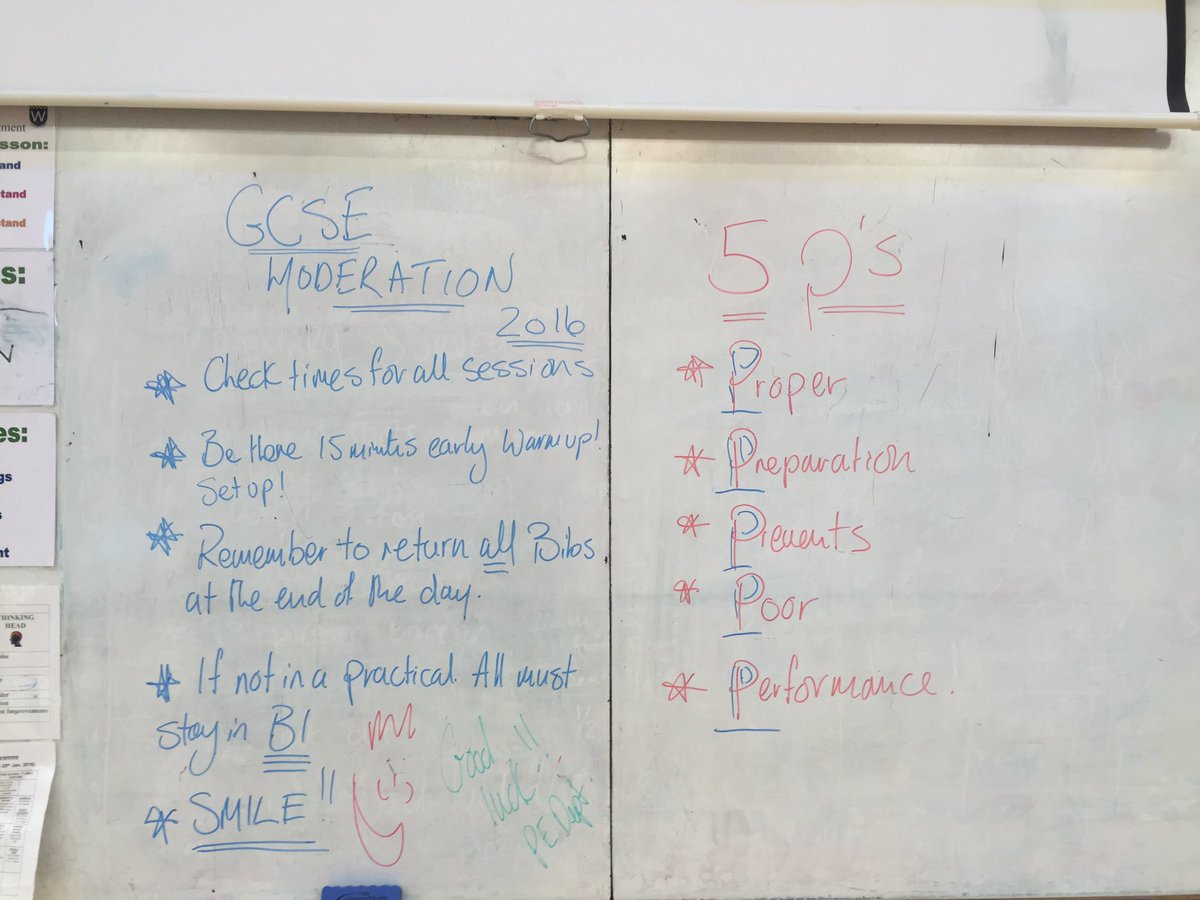 GCSE
MODERATION
2016
Check times for all sessions
Be Here 15 minutes early Warm up!
Set up!
Remember to return all Bibs
at the end of the day.
If not in a practical. All must
stay in B1
SMILE!!
Good
luck!!
PE Dept
5 P's
Proper
Preparation
Prevents
Poor
Performance.
ment
sson:
and
stand
stand
s:
N
es:
gs
s
nt
THINKING
HEAD